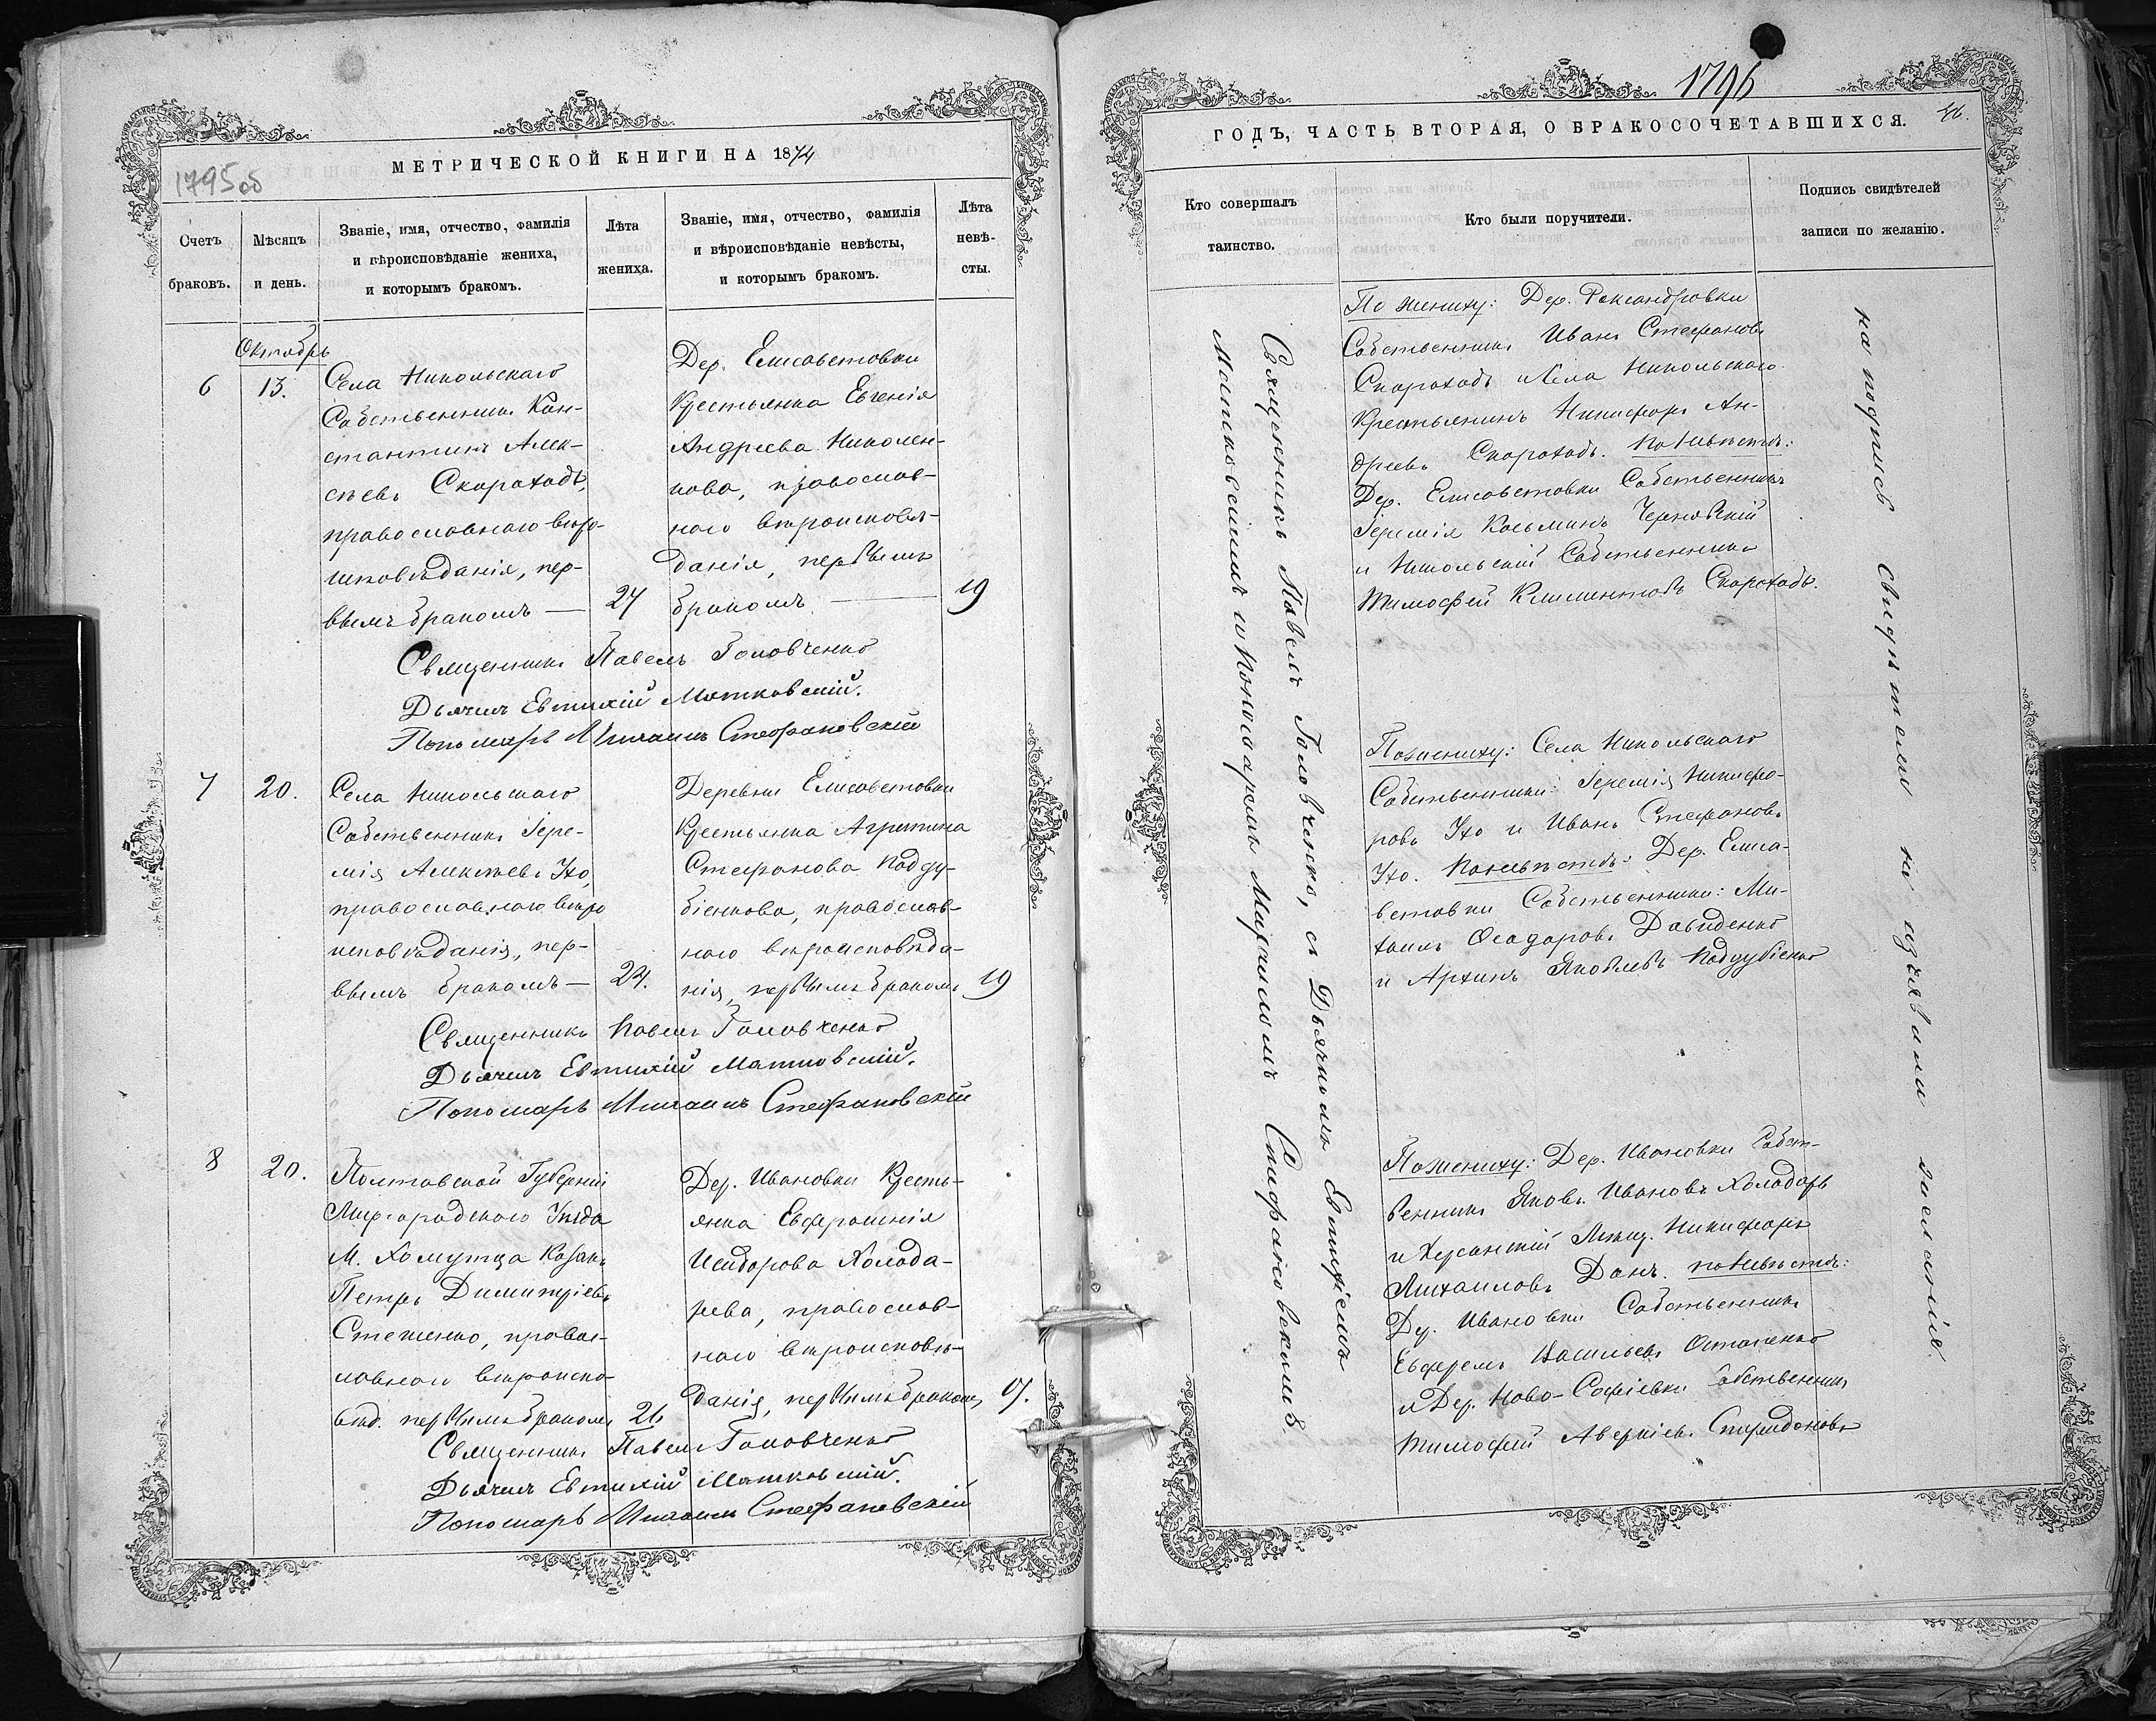 МЕТРИЧЕСКОЙ КНИГИ НА 1874
1795 об
Счетъ браковъ.
Мѣсяцъ и день.
Званіе, имя, отчество, фамилія и вѣроисповѣданіе жениха, и которымъ бракомъ.
Лѣта жениха.
Званіе, имя, отчество, фамилія и вѣроисповѣданіе невѣсты, и которымъ бракомъ.
Лѣта невѣ-сты.
Октябрь
6
13.
Села Никольскаго
Собственникъ Кон-
стантинъ Алек-
сѣевъ Скороходъ,
православнаго вѣро-
исповѣданія, пер-
вымъ бракомъ —
27
Дер. Елисаветовки
Крестьянка Евгенія
Андреева Николен-
кова, православ-
наго вѣроисповѣ-
данія, первымъ
бракомъ —
19
Священникъ Павелъ Головченко
Дьячекъ Евтихій Матковскій.
Пономарь Михаилъ Стефановскій
7
20.
Села Никольскаго
Собственникъ Іере-
мія Алексѣевъ Ухо,
православнаго вѣро
исповѣданія, пер-
вымъ бракомъ —
24.
Деревни Елисаветовки
Крестьянка Агрипина
Стефанова Подду-
біенкова, православ-
наго вѣроисповѣда-
нія, первымъ бракомъ
19
Священникъ Павелъ Головченко
Дьячекъ Евтихій Матковскій.
Пономарь Михаилъ Стефановскій
8
20.
Полтавской Губерніи
Миргородскаго Уѣзда
М. Хомутца Козакъ
Петръ Димитріевъ
Стеценко, правос-
лавнаго вѣроиспо-
вѣд. первымъ бракомъ
26
Дер. Ивановки Кресть-
янка Евфросинія
Исидорова Холода-
рева, православ-
наго вѣроисповѣ-
данія, первымъ бракомъ,
17.
Священникъ Павелъ Головченко
Дьячекъ Евтихій Матковскій.
Пономарь Михаилъ Стефановскій
1796
46.
ГОДЪ, ЧАСТЬ ВТОРАЯ, О БРАКОСОЧЕТАВШИХСЯ.
Кто совершалъ таинство.
Кто были поручители.
Подпись свидѣтелей записи по желанію.
Священникъ Павелъ Головченко, съ Дьячкомъ Евтихіемъ
Матковскимъ и Пономаремъ Михаиломъ Стефановскимъ.
По жениху: Дер.
Собственникъ Иванъ Стефановъ
Скороходъ и Села Никольскаго
Крестьянинъ Никифоръ Ан-
дреевъ Скороходъ. По невѣстѣ:
Дер. Елисаветовки Собственникъ
Іеремія Косьминъ Чернявскій
и Никольскій Собственникъ
Тимофей Климентовъ Скороходъ.
По жениху: Села Никольскаго
Собственники: Іеремія Никифо-
ровъ Ухо и Иванъ Стефановъ
Ухо. По невѣстѣ: Дер. Елиса-
ветовки Собственники: Ми-
хаилъ Ѳеодоровъ Давиденко
и Архипъ Яковлевъ Поддубіенко
По жениху: Дер. Ивановки Собст-
венникъ Яковъ Ивановъ Холодарь
и Херсонскій Мѣщ. Никифоръ
Михаиловъ Донъ. по невѣстѣ:
Дер. Ивановки Собственникъ
Евфремъ Васильевъ Остапенко
и Дер. Ново-Софіевки Собственникъ
Тимофей Аверкіевъ Спиридоновъ
на подпись свидѣтели не изъявили желанія.